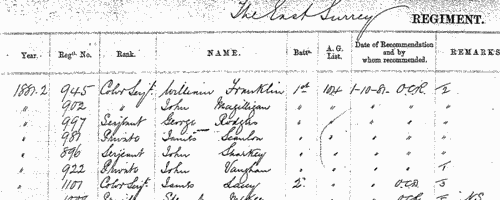 The East Surrey REGIMENT.
Year. Regtl. No. Rank. NAME. Batn. A. G. List. Date of Recommendation and by whom recommended. REMARKS
1881-2 945 Color Serjt. William Franklin 1st 104 1-10-81 O.C.R.
" 902 " John Magilligan " " " "
" 997 Serjeant George Rodgers " " " "
" 987 Private James Scanlon " " " "
" 896 Serjeant John Sharkey " " " "
" 922 Private John Vaughan " " " "
" 1101 Color Serjt. James Lacey 2. " " O.C.R.